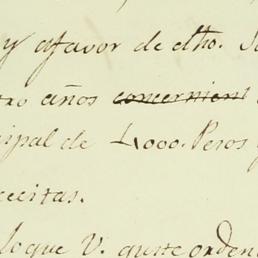 y afavor de dho. S
tro años concernient
cipal de 4,000. Pesos
cecitas.
loque V. guste orden